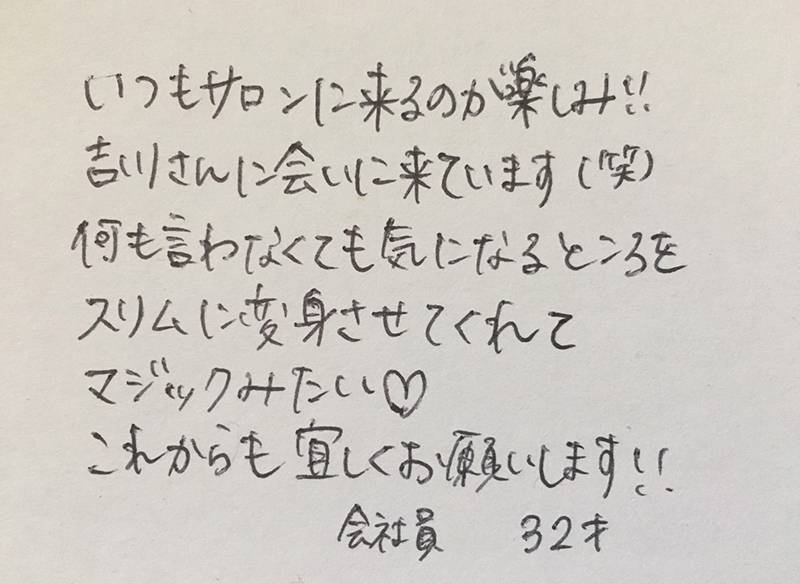 いつもサロンに来るのが楽しみ!!
吉川さんに会いに来ています(笑)
何も言わなくても気になるところを
スリムに変身させてくれて
マジックみたい♡
これからも宜しくお願いします!!
会社員 32才